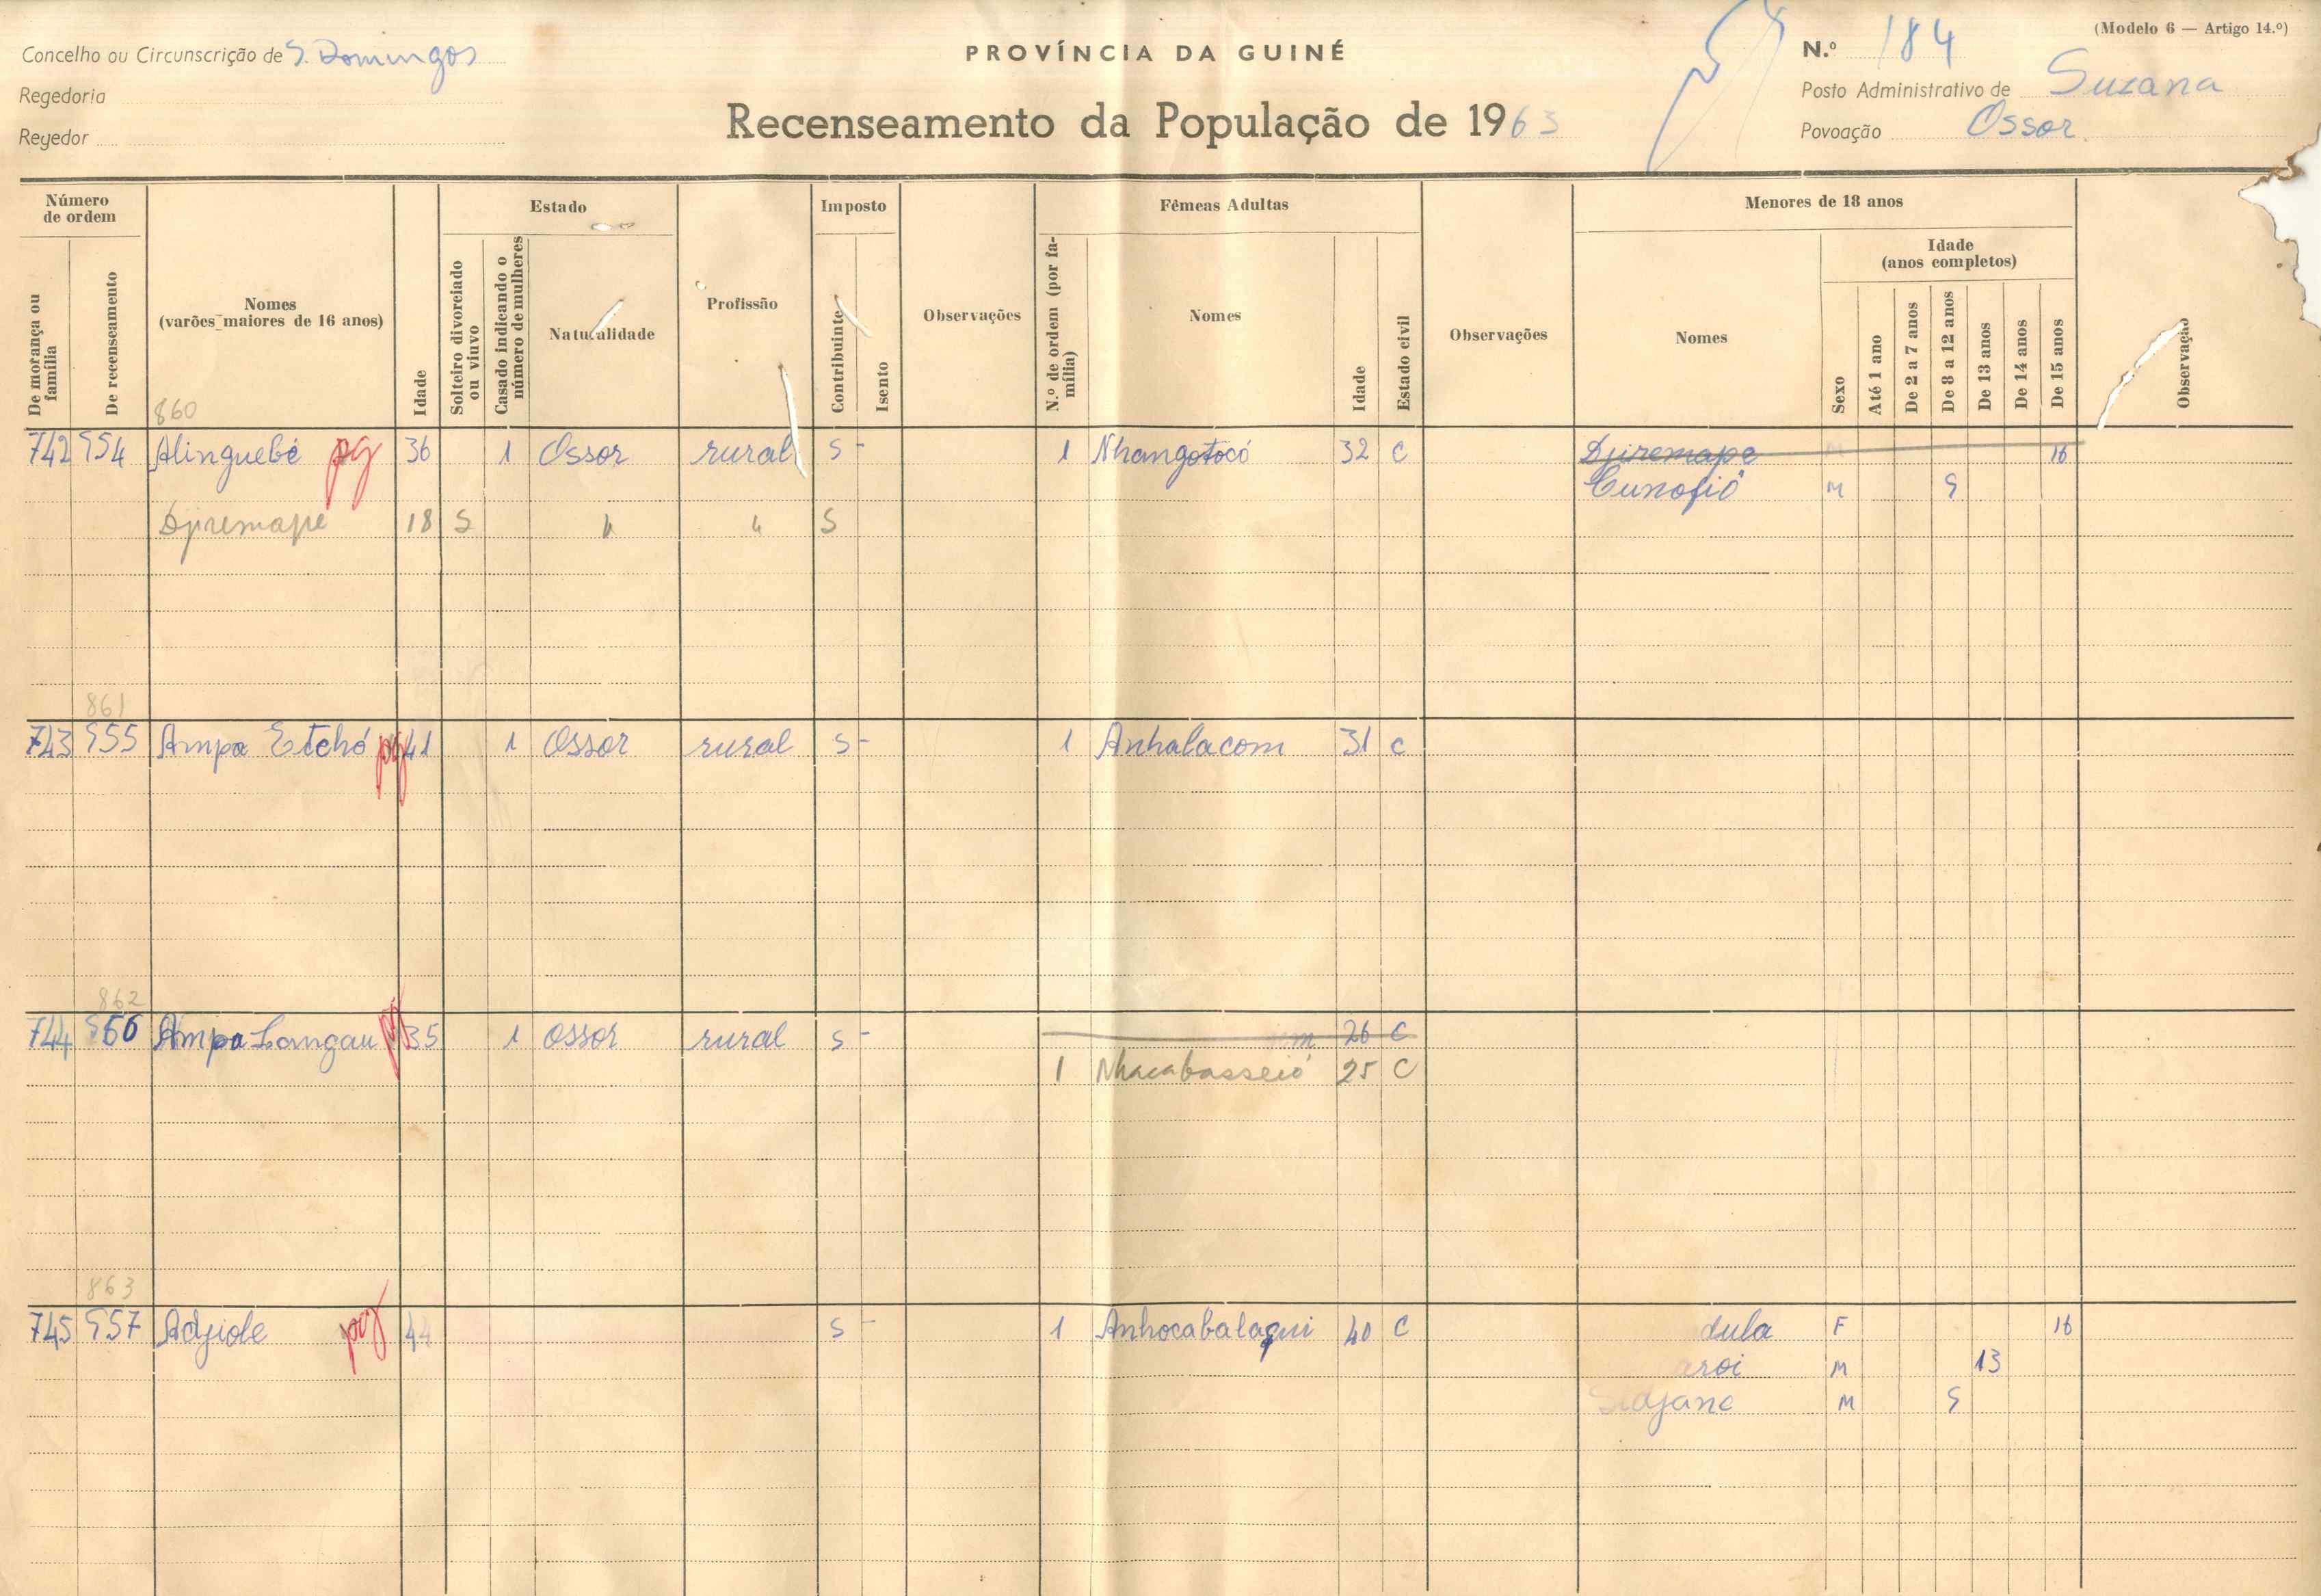 (Modelo 6 — Artigo 14.º)
Concelho ou Circunscrição de S. Domingos
PROVÍNCIA DA GUINÉ
N.º 184
Regedoria
Posto Administrativo de Suzana
Regedor
Recenseamento da População de 1963
Povoação Ossor
Número de ordem
De morança ou família
De recenseamento
Nomes
(varões maiores de 16 anos)
Idade
Estado
Solteiro divorciado ou viuvo
Casado indicando o número de mulheres
Naturalidade
Profissão
Imposto
Contribuinte
Isento
Observações
Fêmeas Adultas
N.º de ordem (por família)
Nomes
Idade
Estado civil
Observações
Menores de 18 anos
Nomes
Sexo
Idade
(anos completos)
Até 1 ano
De 2 a 7 anos
De 8 a 12 anos
De 13 anos
De 14 anos
De 15 anos
Observação
860
742 954 Alinguebé pg 36 1 Ossor rural S - 1 Nhangotocó 32 C Djiremape M 16
Cunofió M 9
Djiremape 18 S " " S
861
743 955 Ampa Etchó pg 41 1 Ossor rural S - 1 Anhalacom 31 C
862
744 956 Ampa Langau pg 35 1 Ossor rural S - 26 C
1 Nhacabasseió 25 C
863
745 957 Adjiole pg 44 S - 1 Anhocabalaqui 40 C dula F 16
aroi M 13
Sidjane M 9